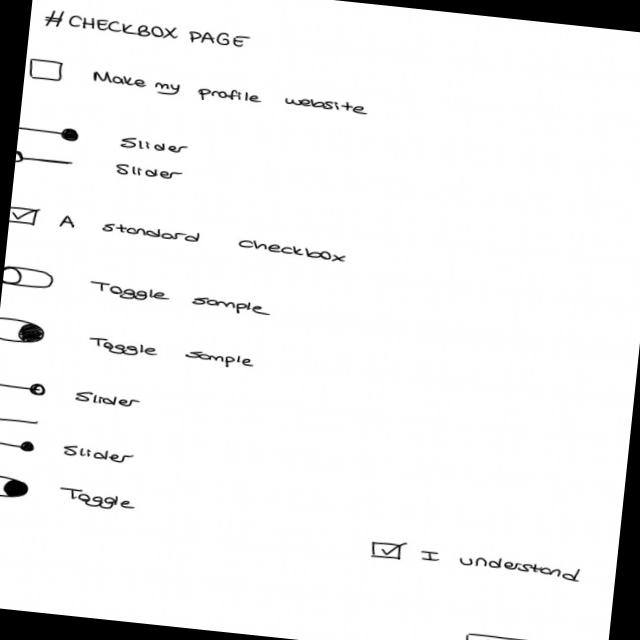 #CHECKBOX PAGE
Make my profile website
Slider
Slider
A standard checkbox
Toggle sample
Toggle sample
Slider
Slider
Toggle
I understand